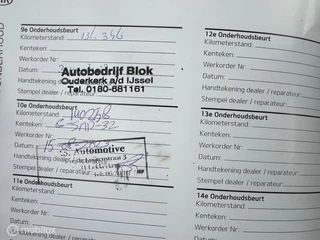 9e Onderhoudsbeurt
Kilometerstand:
Kenteken:
Werkorder Nr.:
Datum:
Handtekening dealer
Stempel dealer / reparateur
Autobedrijf Blok
Ouderkerk a/d IJssel
Tel. 0180-681161
10e Onderhoudsbeurt
Kilometerstand:
Kenteken:
Werkorder Nr.:
Datum: 15-08-2023
Handtekening dealer
Stempel dealer / reparateur
S. Automotive
11e Onderhoudsbeurt
Kilometerstand:
Kenteken:
Werkorder Nr.:
Datum:
12e Onderhoudsbeurt
Kilometerstand:
Kenteken:
Werkorder Nr.:
Datum:
Handtekening dealer / reparateur:
Stempel dealer / reparateur:
13e Onderhoudsbeurt
Kilometerstand:
Kenteken:
Werkorder Nr.:
Datum:
Handtekening dealer / rep
Stempel dealer / reparateur:
14e Onderhoudsbeurt
Kilometerstand:
Kenteken:
mobilox